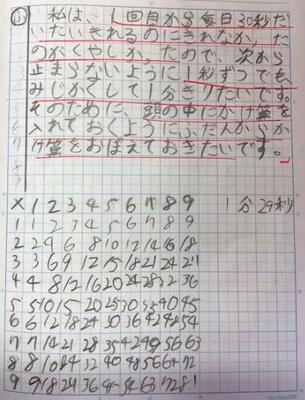 ③ 私は、1回目から毎日30秒だ
いたいきれるのにきれなかった
のがくやしかったので、次から
止まらないように1秒ずつでも
みじかくして1分きりたいです。
そのために、頭の中にかけ算を
入れておくようにふだんからか
け算をおぼえておきたいです。
× 1 2 3 4 5 6 7 8 9 1分29秒
1 1 2 3 4 5 6 7 8 9
2 2 4 6 8 10 12 14 16 18
3 3 6 9 12 15 18 21 24 27
4 4 8 12 16 20 24 28 32 36
5 5 10 15 20 25 30 35 40 45
6 6 12 18 24 30 36 42 48 54
7 7 14 21 28 35 42 49 56 63
8 8 16 24 32 40 48 56 64 72
9 9 18 27 36 45 54 63 72 81